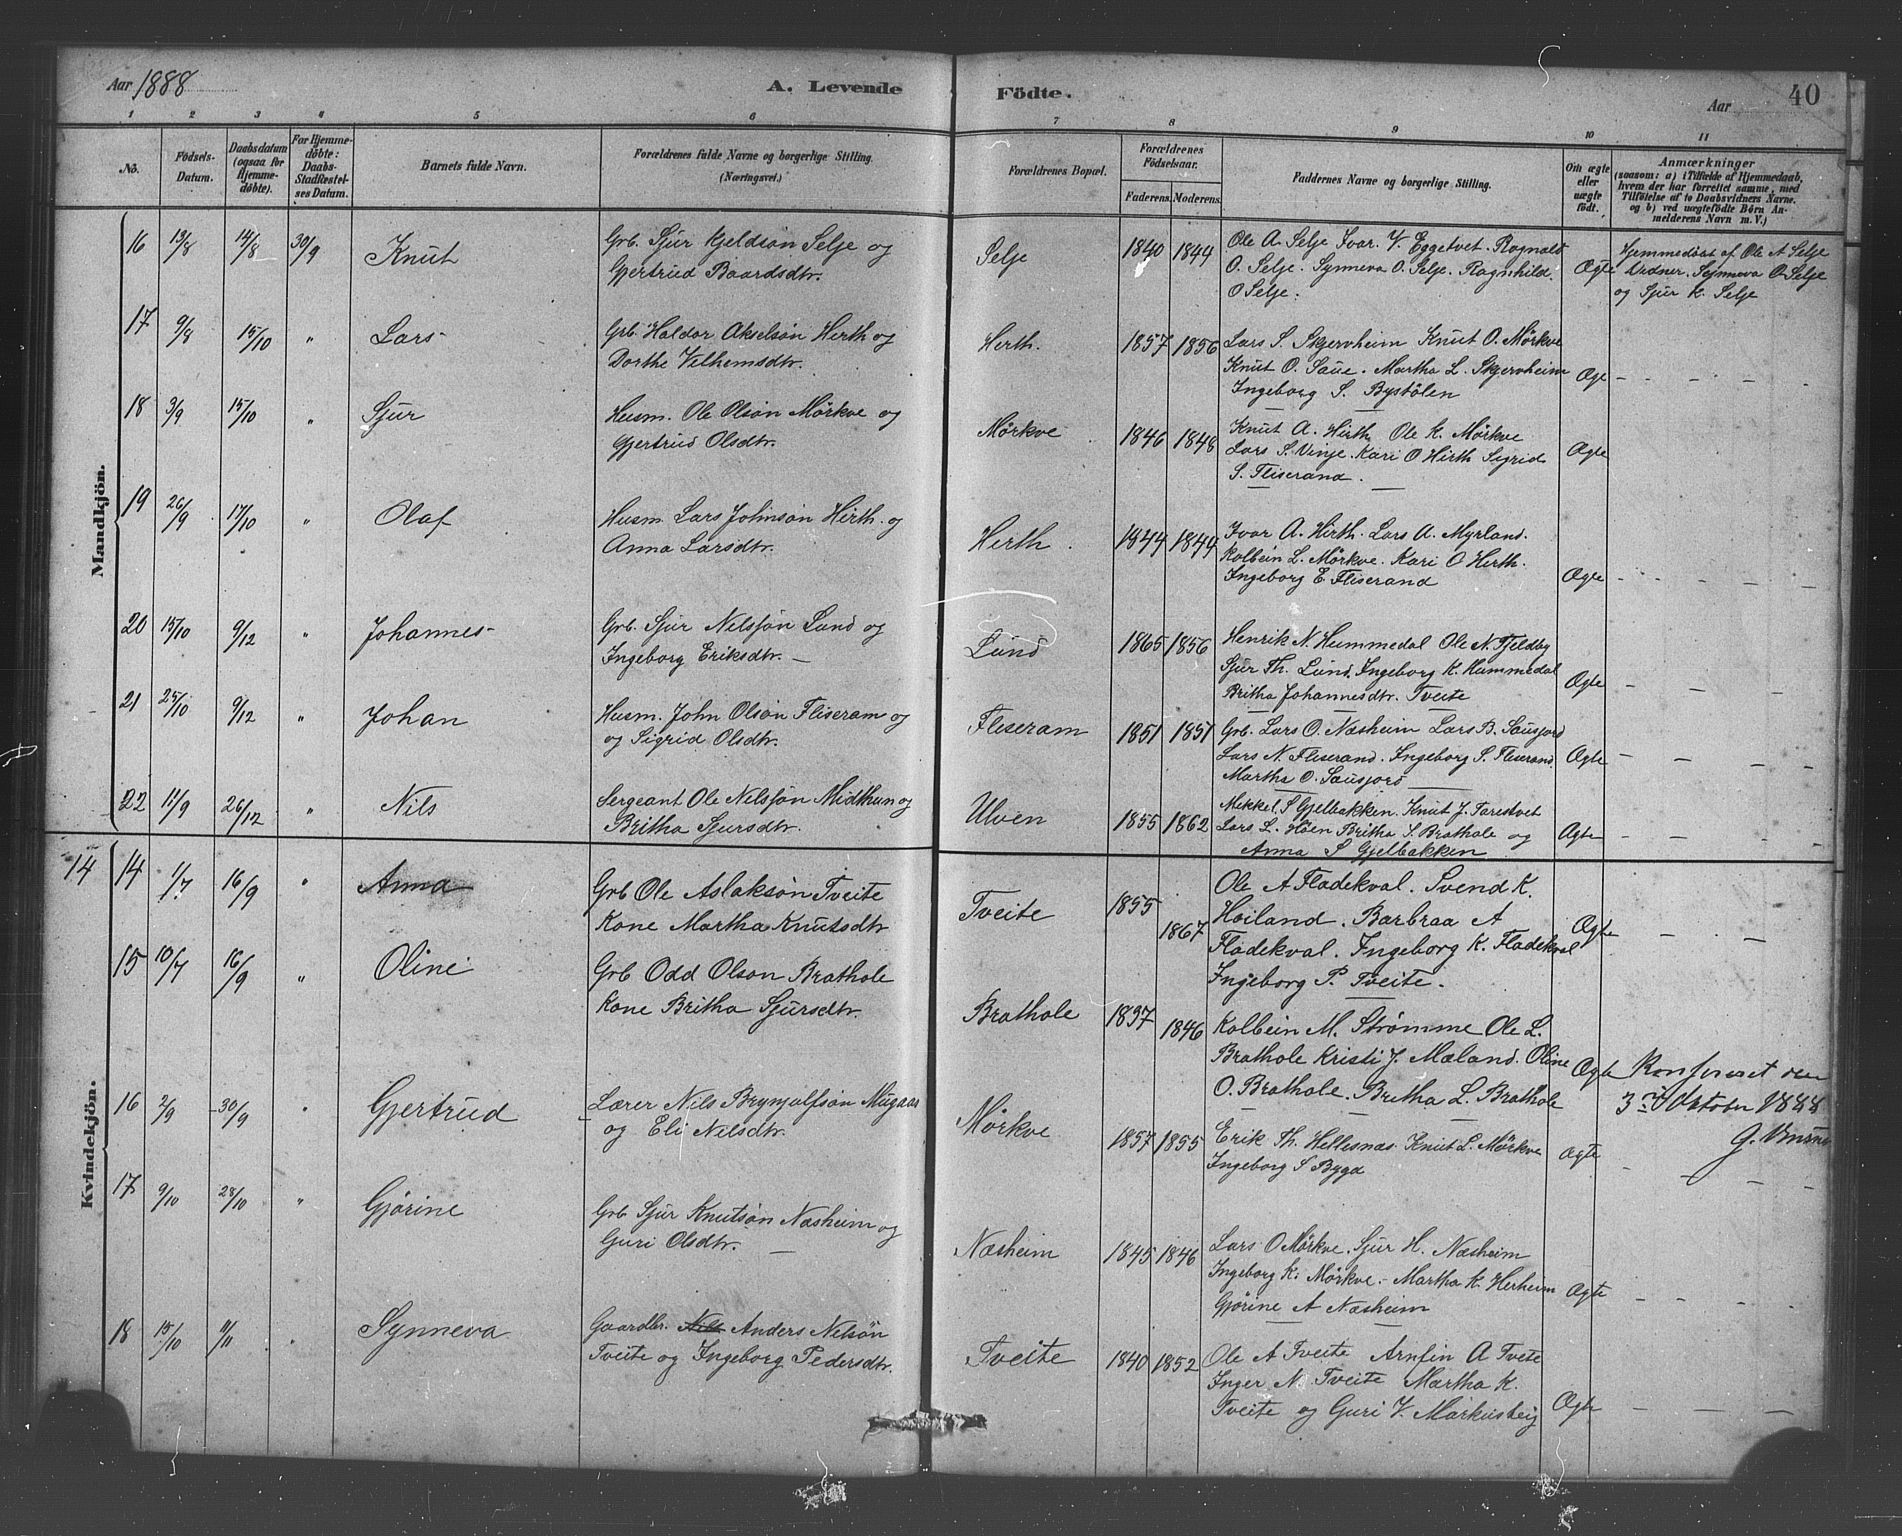 Aar 1888
A. Levende Födte.
Aar
40
1 2 3 4 5 6 7 8 9 10 11
No.
Födsels-
Datum.
Daabsdatum
(ogsaa for
Hjemme-
døbte).
For Hjemme-
døbte:
Daabs-
Stadfæstel-
ses Datum.
Barnets fulde Navn.
Forældrenes fulde Navne og borgerlige Stilling.
(Næringsvei.)
Forældrenes Bopæl.
Forældrenes
Födselsaar.
Faderens. Moderens.
Faddernes Navne og borgerlige Stilling.
Om ægte
eller
uægte
födt.
Anmærkninger
(saasom: a) i Tilfælde af Hjemmedaab,
hvem der har forrettet samme, med
Tilföielse af to Daabsvidners Navne.
og b) ved uægtefödte Börn An-
melderens Navn m. V.)
Mandkjön.
16 13/8 14/8 30/9 Knut
Grb. Sjur Kjeldsön Selje og
Gjertrud Baardsdtr.
Selje 1840 1844
Ole A. Selje Ivar. V. Eggetvet. Rognald
O. Selje. Synneva O. Selje. Ragnhild.
O Selje.
Ægte
Hjemmedöbt af Ole A Selje
Vidner. Synneva O Selje
og Sjur K. Selje
17 9/8 15/10 " Lars
Grb. Haldor Akselsön Herth og
Dorthe Vilhemsdtr.
Herth. 1857 1856
Lars S. Skjervheim Knut O. Mörkve
Knut O. Saue. Martha L. Skjervheim
Ingeborg S. Bystölen
Ægte
18 3/9 15/10 " Sjur
Husm. Ole Olsön Mörkve og
Gjertrud Olsdtr.
Mörkve 1846 1848
Knut A. Hirth, Ole K. Mörkve
Lars S. Vinje. Kari O Hirth Sigrid
S. Fliserand.
Ægte
19 26/9 17/10 " Olaf
Husm. Lars Johnsön Hirth. og
Anna Larsdtr.
Herth. 1844 1849
Ivar A. Hirth. Lars A. Myrland.
Kolbein L. Mörkve. Kari O Herth.
Ingeborg E. Fliserand
Ægte
20 15/10 9/12 " Johannes
Grb. Sjur Nilssön Lund og
Ingeborg Eriksdtr.
Lund 1865 1856
Henrik N. Hummedal Ole N. Fjeldby
Sjur Th. Lund. Ingeborg K. Hummedal
Britha Johannesdtr. Tveite
Ægte
21 25/10 9/12 " Johan
Husm. John Olsön Fliseram og
og Sigrid Olsdtr.
Fliseram 1851 1851
Grb. Lars O. Næsheim Lars B. Sausjord
Lars N. Fliserand. Ingeborg S. Fliserand.
Martha O. Sausjord
Ægte
22 11/9 26/12 " Nils
Sergeant Ole Nilssön Midthun og
Britha Sjursdtr.
Ulven 1855 1862
Mikkel S Gjelbakken. Knut J. Farestvet
Lars L. Höen Britha S. Brathole og
Anna S Gjelbakken
Ægte
Kvindekjön.
14 14 1/7 16/9 " Anna
Grb Ole Aslaksön Tveite
Kone Martha Knutsdtr
Tveite 1855 1867
Ole A Fladekval. Svend K.
Hoiland. Barbraa A
Fladekval. Ingeborg K. Fladekval
Ingeborg P. Tveite.
Ægte
15 10/7 16/9 " Oline
Grb Odd Olson Brathole
Kone Britha Sjursdtr.
Brathole 1837 1846
Kolbein M. Strømme Ole L.
Brathole Kristi J. Mæland. Oline
O. Brathole. Bretha L. Brathole
Ægte
Konfereret den
3die Oktober 1888
G.
16 2/9 30/9 " Gjertrud
Lærer Nils Brynjulfsön Mugaas
og Eli Nilsdtr.
Mörkve 1857 1855
Erik Th. Hellesnæs Knut L. Mörkve
Ingeborg S Bygd
Ægte
17 9/10 28/10 " Gjørine
Grb Sjur Knutsön Næsheim og
Guri Olsdtr.
Næsheim 1845 1846
Lars O Mörkve. Sjur H. Næsheim
Ingeborg K. Mörkve. Martha K. Herheim
Gjørine A Næsheim
Ægte
18 15/10 11/11 " Synneva
Gaardbr. Nils Anders Nelsön
Tveite og Ingeborg Pedersdtr.
Tveite 1840 1852
Ole A Tveite Arnfin A Tvete
Inger N. Tveite Martha K.
Tveite og Guri V. Markusteig
Ægte